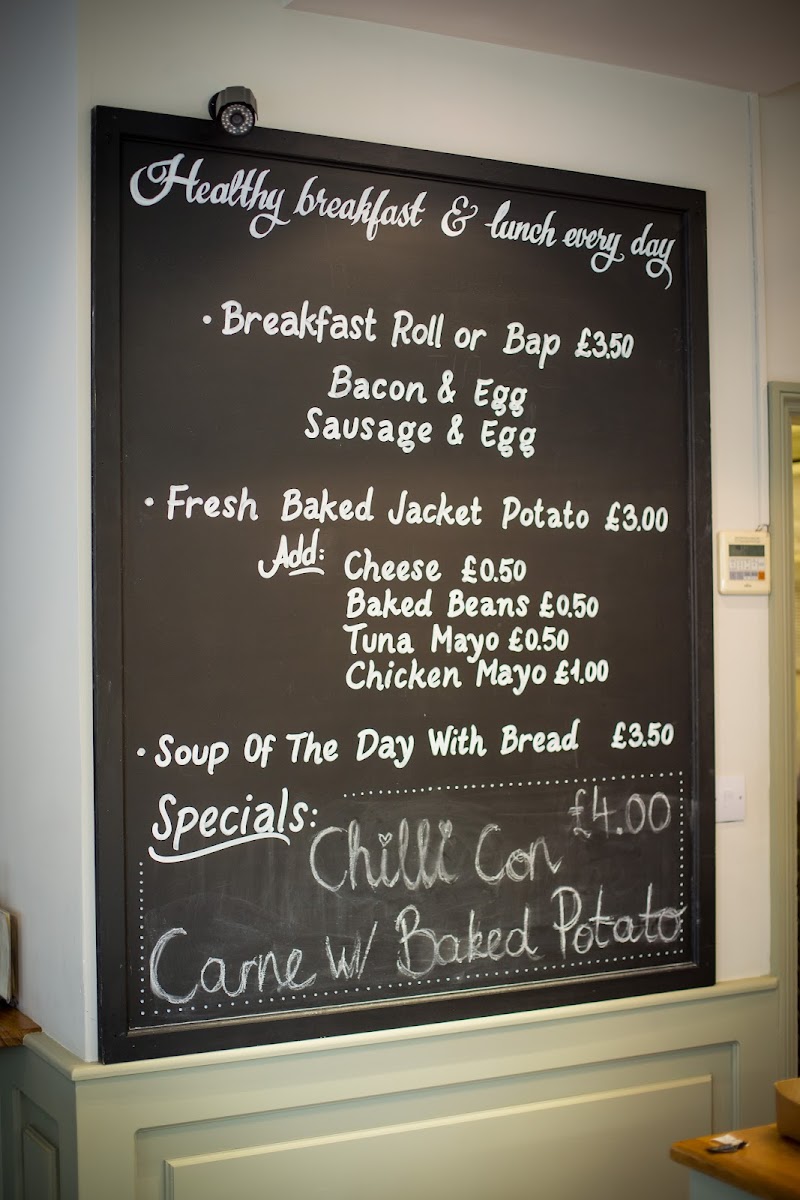 Healthy breakfast & lunch every day
• Breakfast Roll or Bap £3.50
Bacon & Egg
Sausage & Egg
• Fresh Baked Jacket Potato £3.00
Add: Cheese £0.50
Baked Beans £0.50
Tuna Mayo £0.50
Chicken Mayo £1.00
• Soup Of The Day With Bread £3.50
Specials: £4.00
Chilli Con
Carne w/ Baked Potato